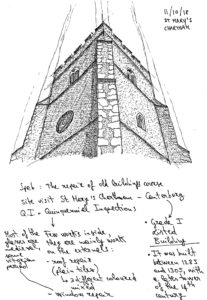 11/10/18
ST MARY'S
CHARTHAM
Spab: The repair of old buildings course
Site visit St Mary's Chartham - Canterbury
Q.I - Quinquennial Inspections
Most of the
glasses are
medieval,
some
victorian
Few works inside,
they are mainly works
on the externals:
- roof repair
(plain tiles)
↳ 3 different coloured
mixed
- window repair
- Grade I
Listed
Building
- It was built
between 1285
and 1305, with
the tower of
the 14th
century